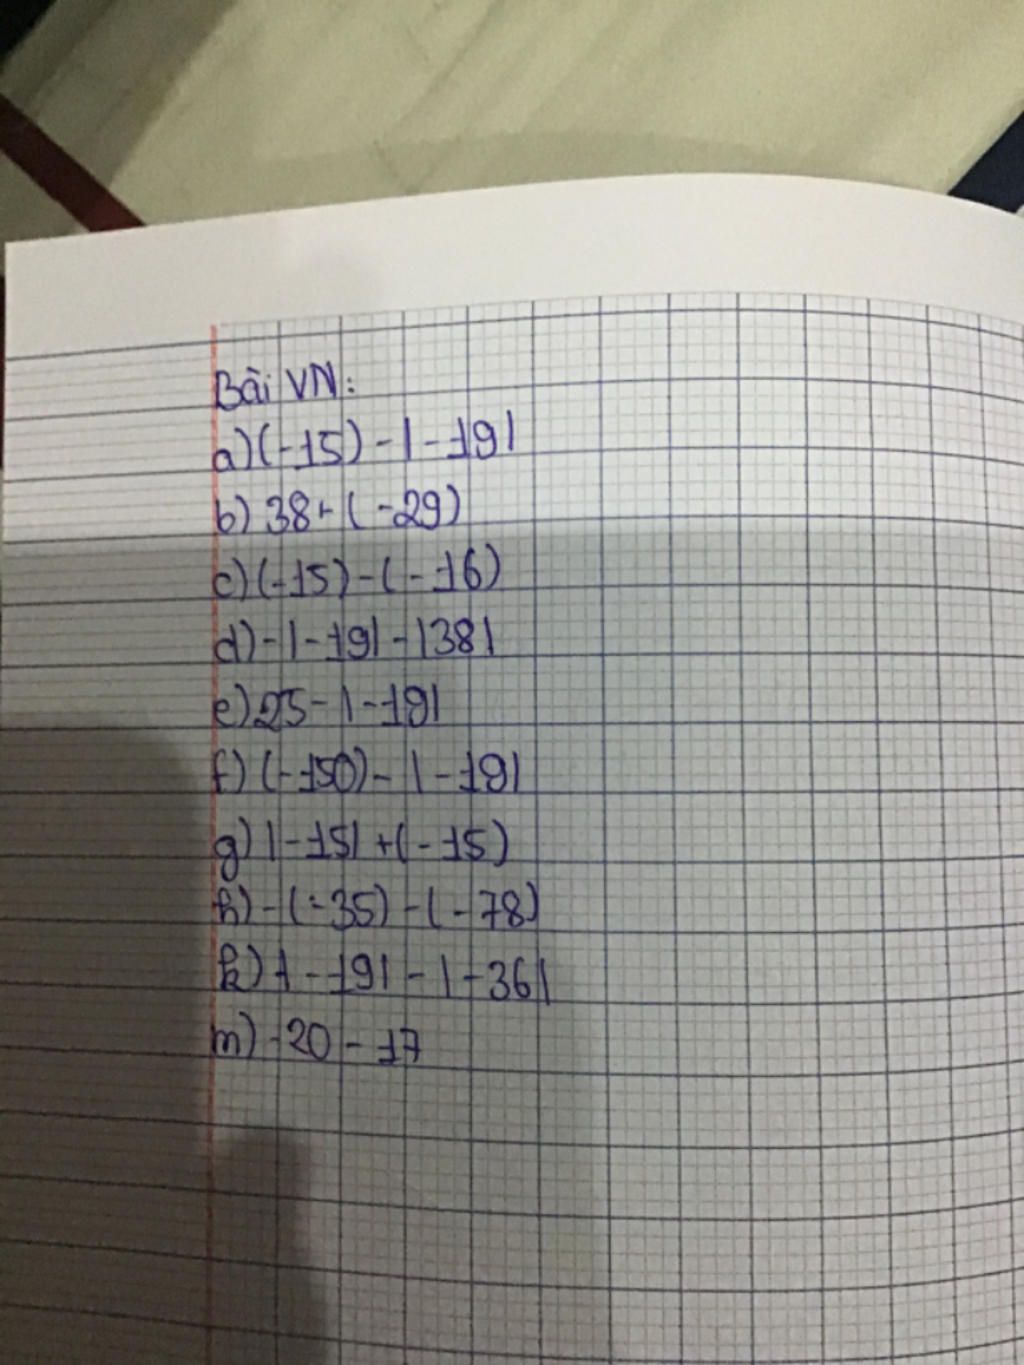 Bài VN:
a) (-15) - |-19|
b) 38 + (-29)
c) (-15) - (-16)
d) -|-19| - |38|
e) 25 - |-19|
f) (-150) - |-19|
g) |-15| + (-15)
h) -(-35) - (-78)
k) |-19| - |-36|
m) -20 - 17